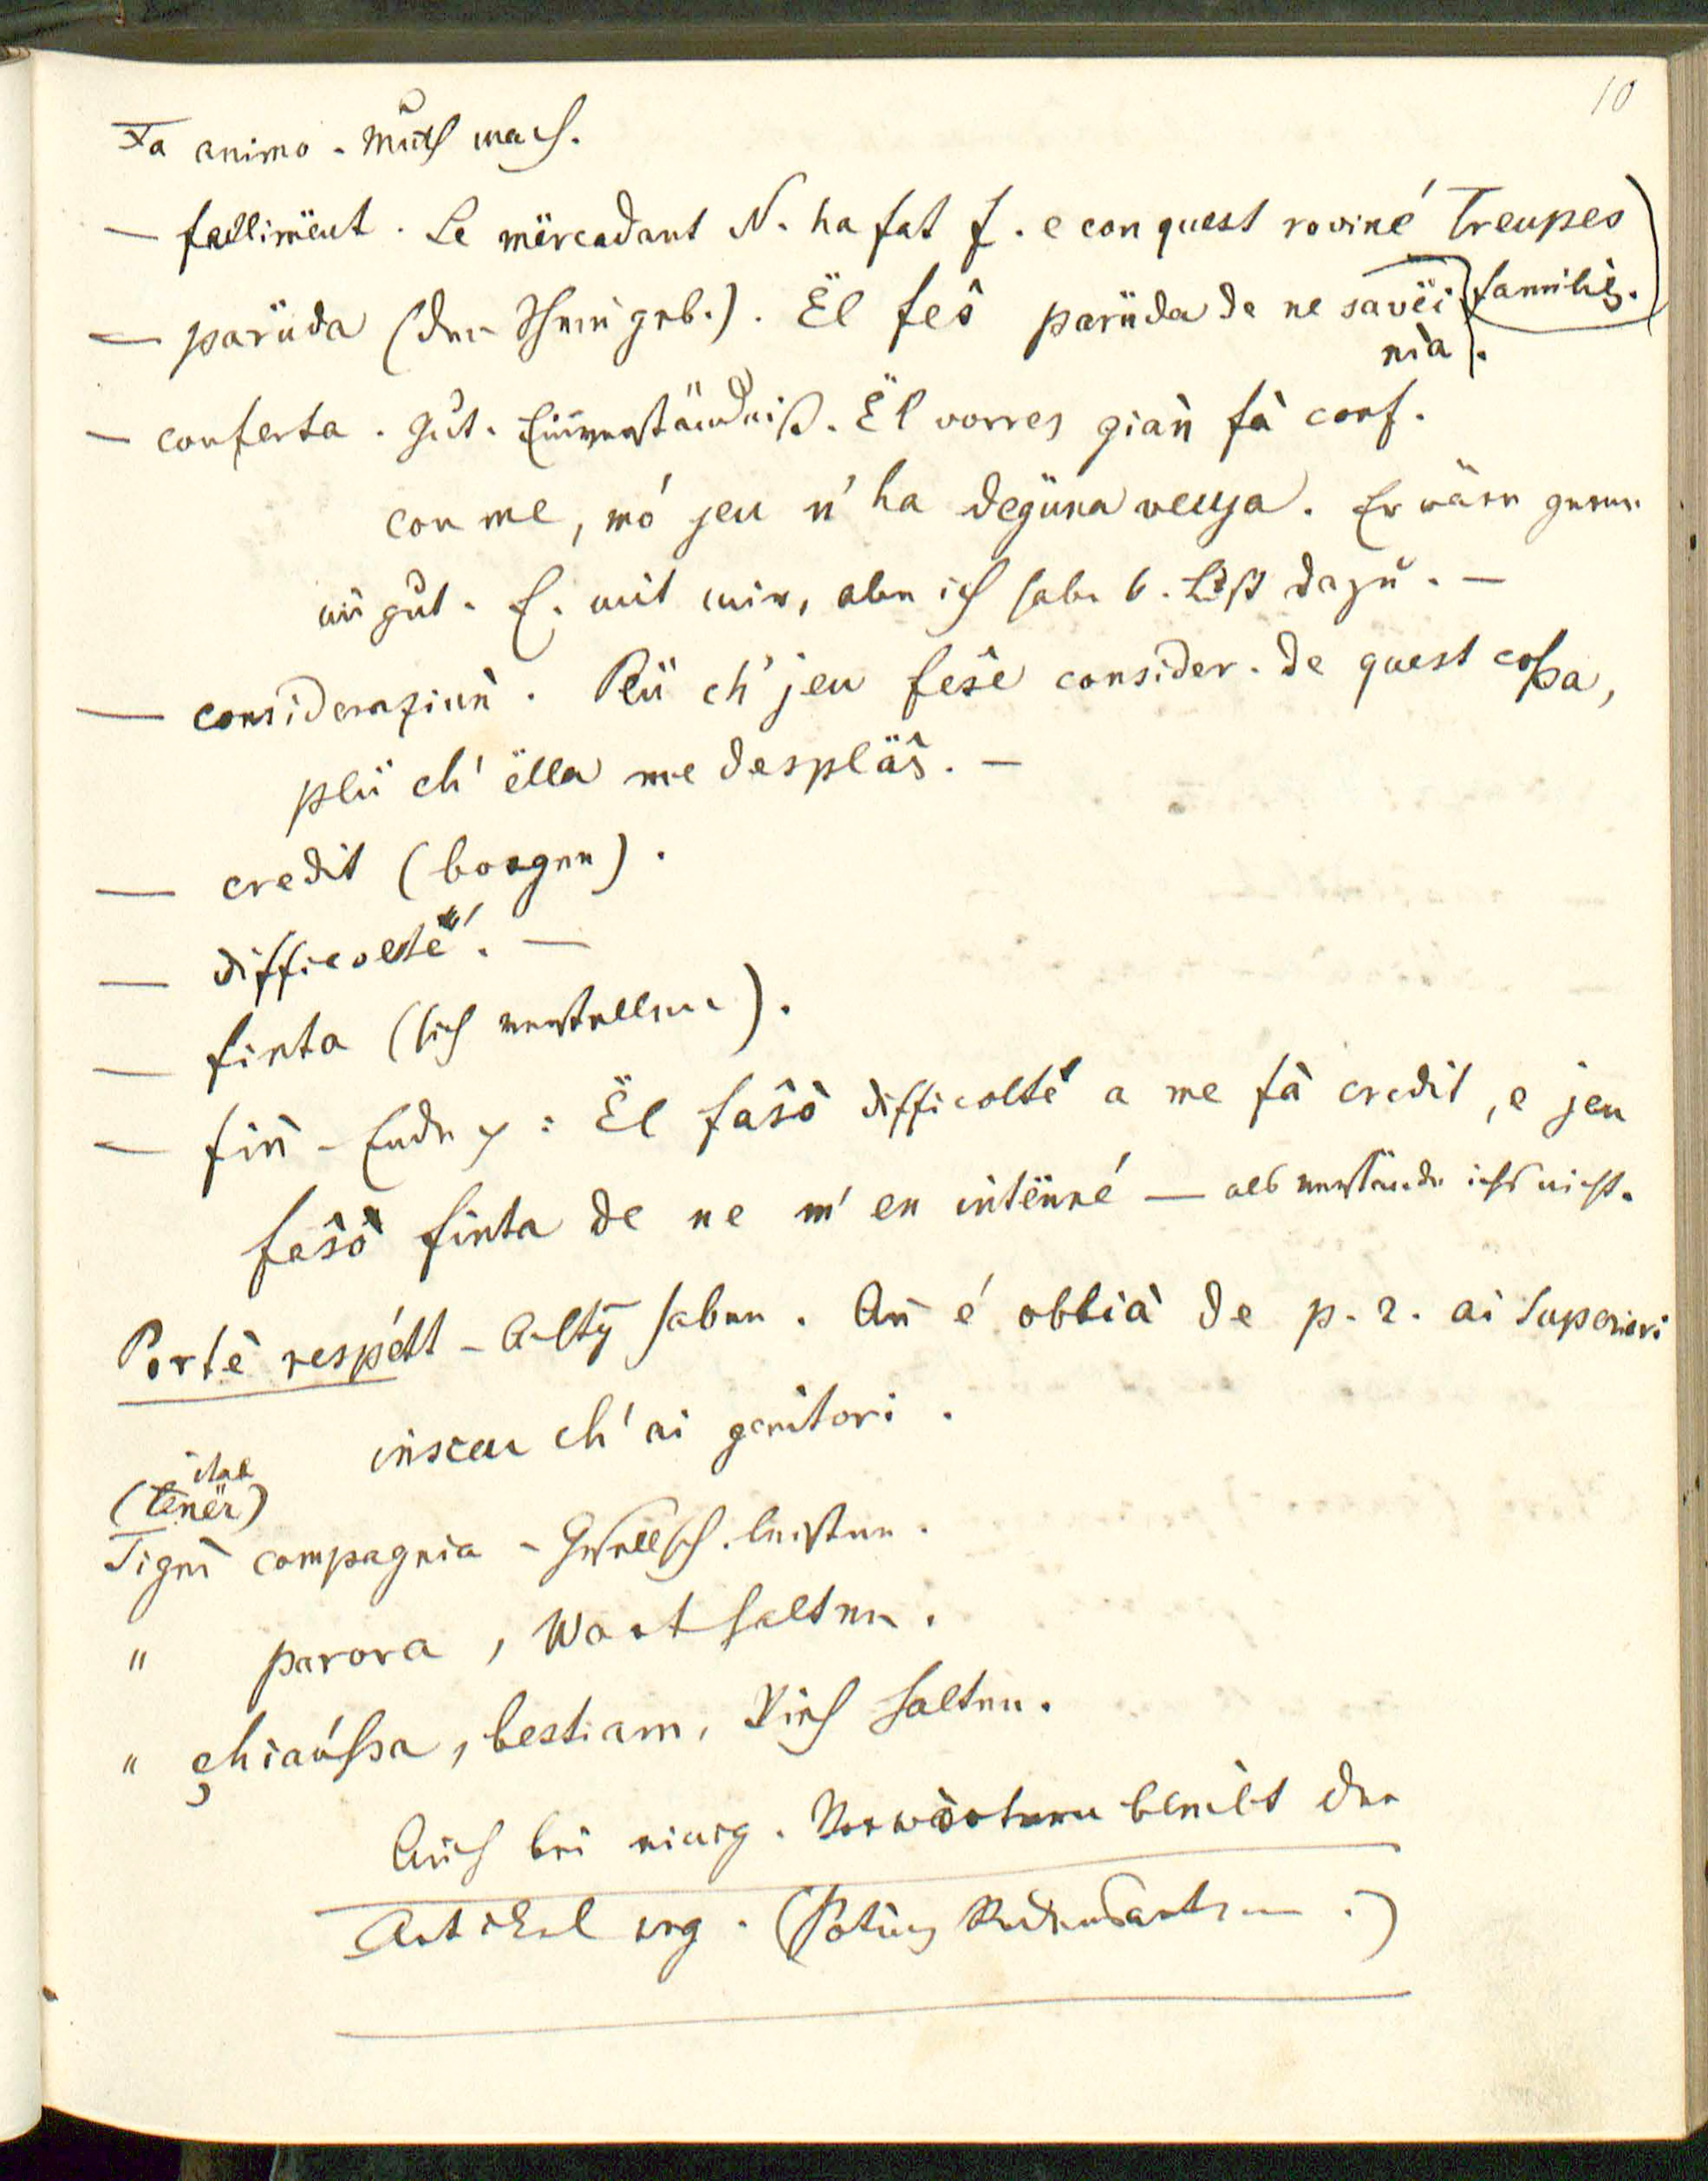 10
Fa animo - Muth mach.
— fallimënt. Le mërcadant N. ha fat f. e con quest roviné treupes
familiës.
— parüda (den Schein geb.). Ël fes parüda de ne savëi
nia.
— conferta. gut. Einverständniß. Ël vorres gian fà conf.
con me, mó jeu n' ha degüna veuja. Er wäre gerne
in gut. E. mit mir, aber ich habe k. Lust dazu. —
— consideraziun. Plü ch' jeu feŝe consider. de quest coßa,
plü ch' ëlla me despläŝ. —
— credit (borgen).
— difficolté. —
— finta (sich verstellen).
— fin - Ende: Ël faŝô difficolté a me fà credit, e jeu
feŝô finta de ne m' en intënne — als verstände ichs nicht.
Portè respétt - Achtg haben. An é obblià de p. r. ai Superiori
insceu ch' ai genitori.
ital
(tenër)
Tignì compagnia - Gesellsch. leisten.
" parora, Wort halten.
" chiaußa, bestiam, Vieh halten.
Auch bei einig. Vorwörtern bleibt der
Artikel weg. (Redensarten.)